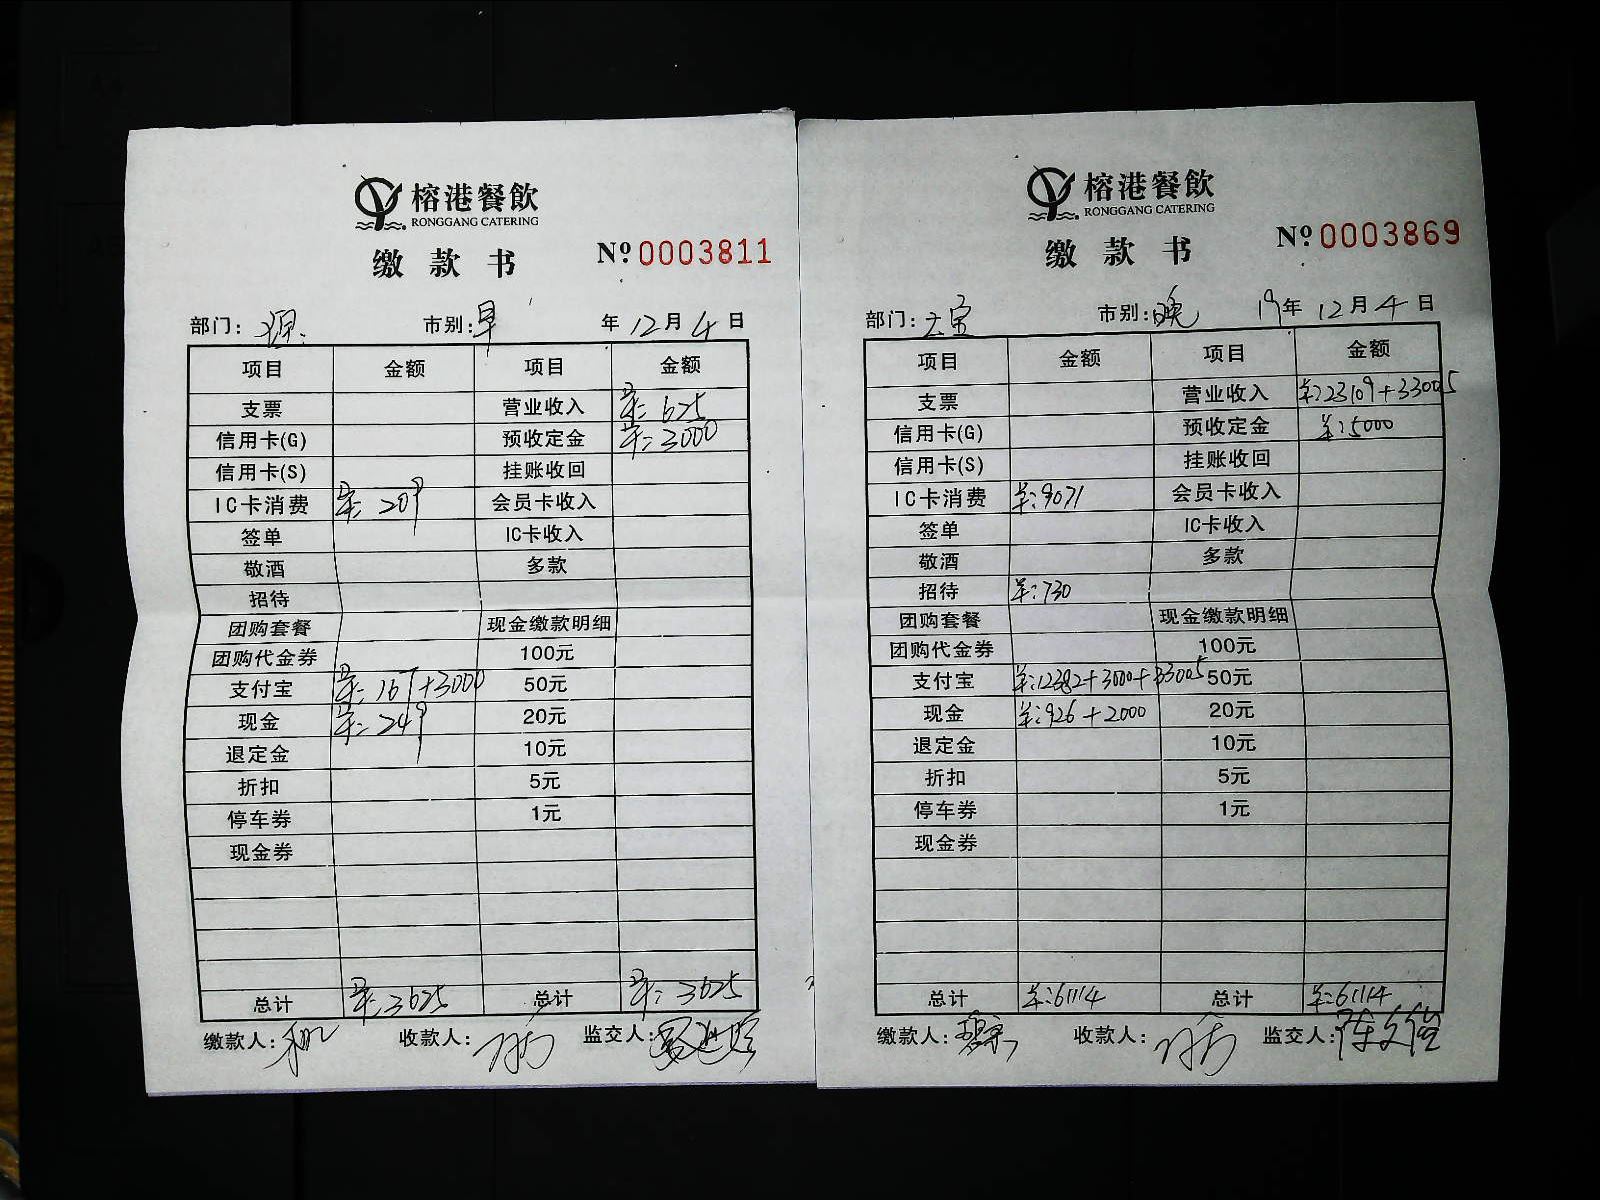 榕港餐飲
RONGGANG CATERING
缴款书
Nº 0003811
部门: 市别:早 年12月4日
项目 金额 项目 金额
支票 营业收入 单:625
信用卡(G) 预收定金 单:3000
信用卡(S) 挂账收回
IC卡消费 单:209 会员卡收入
签单 IC卡收入
敬酒 多款
招待
团购套餐 现金缴款明细
团购代金券 100元
支付宝 单:167+3000 50元
现金 单:249 20元
退定金 10元
折扣 5元
停车券 1元
现金券
总计 单:3625 总计 单:3625
缴款人: 收款人: 监交人:
榕港餐飲
RONGGANG CATERING
缴款书
Nº 0003869
部门: 市别:晚 19年12月4日
项目 金额 项目 金额
支票 营业收入 单:23109+33005
信用卡(G) 预收定金 单:5000
信用卡(S) 挂账收回
IC卡消费 单:9071 会员卡收入
签单 IC卡收入
敬酒 多款
招待 单:730
团购套餐 现金缴款明细
团购代金券 100元
支付宝 单:12382+3000+33005 50元
现金 单:926+2000 20元
退定金 10元
折扣 5元
停车券 1元
现金券
总计 单:61114 总计 单:61114
缴款人: 收款人: 监交人: